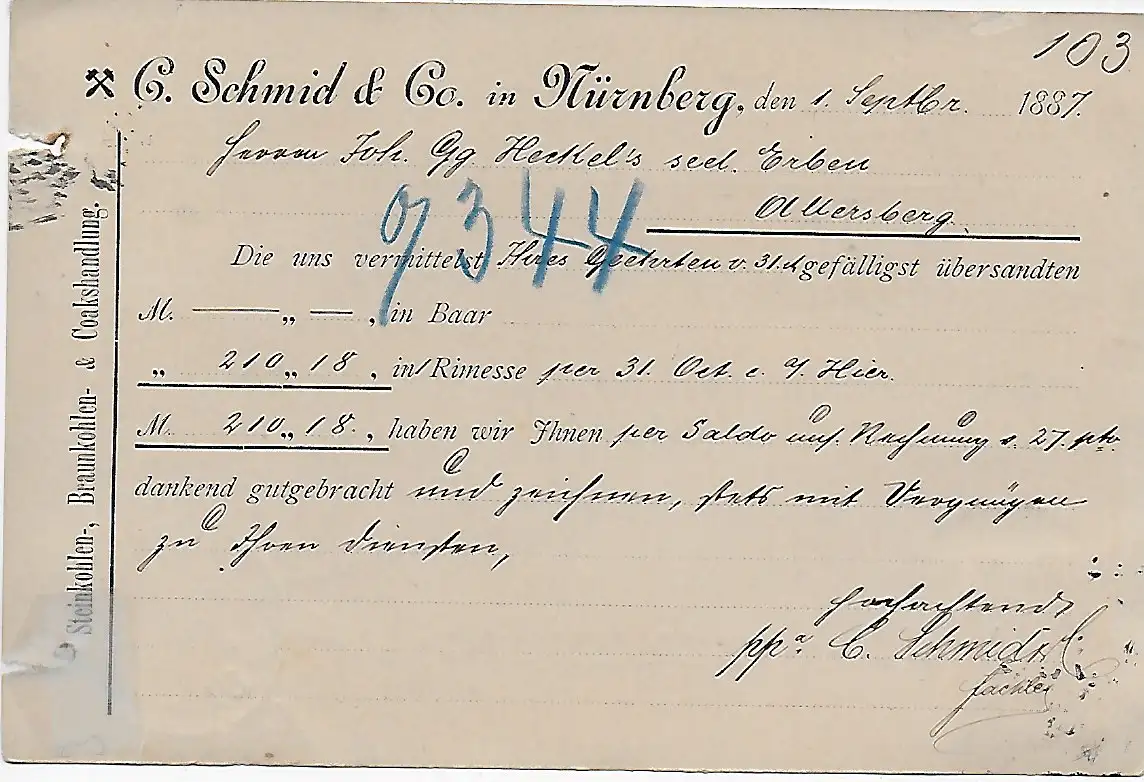 103
C. Schmid & Co. in Nürnberg, den 1. Septbr. 1887.
Herren Joh. Gg Heckel's seel. Erben
Allersberg
9344
Die uns vermittelst Ihres Geehrten v. 31. d gefälligst übersandten
M. — „ — , in Baar
„ 210 „ 18 , in Rimesse per 31. Oct. c. a/ Hier.
M. 210 „ 18. , haben wir Ihnen per Saldo uns. Rechnung v. 27. pto
dankend gutgebracht und zeichnen, stets mit Vergnügen
zu Ihren Diensten,
hochachtend
ppa. C. Schmid & Co.
Steinkohlen-, Braunkohlen- & Coakshandlung.